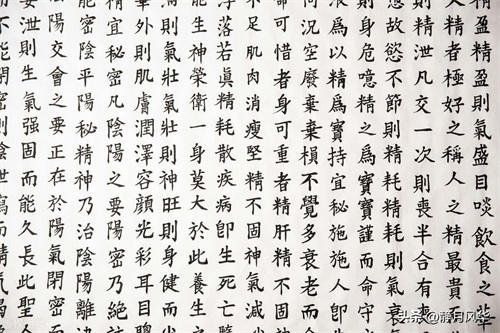 精盈精盈則氣盛目啖飲食之
精者極好之稱人之精最貴
則精泄凡交一次則喪半合有
態故慾不節則精耗精耗則氣衰
則身危噫精之為寶寶謹而命守
液為以精為寶持宜秘施施人卽
何況空廢棄棄損不覺多衰老而
命可惜者身可重者精肝精不固
不足肌肉消瘦堅精不固神氣減
浮落若眞精耗散疾病卽生死亡
能生神榮衛一身莫大於此養生
則氣壯氣壯則神旺則身健而少
華外則肌膚潤澤容顏光彩耳目
精宜秘密凡陰陽之要陽密乃絕
能密陰平陽秘精神乃治陰陽離
陽交會之要正在於陽氣閉密
要泄則生氣强固而能久長此聖人
不能閉密則陰泄寫而精氣
头条 @静月风华